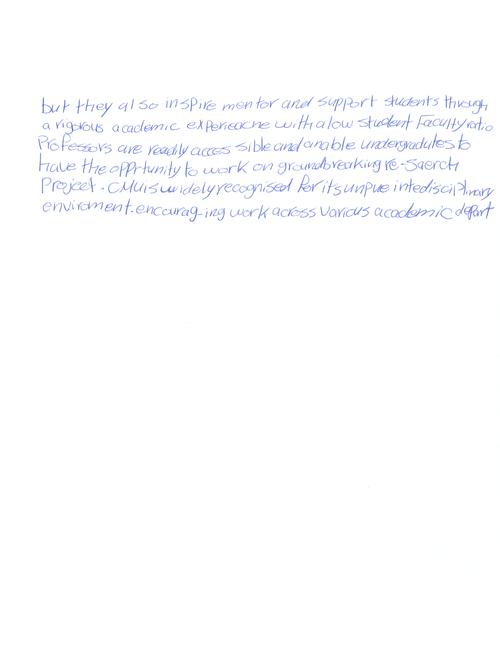 but they also inspire mentor and support students through
a rigorous academic experieacne with a low student Faculty ratio
Professors are readly access sible and anable undergradutes to
have the opprtunity to work on groundbreaking re-Saerch
Project. CMU is widely recognised for its unpue intedisciplinary
enviroment.encourag-ing work across various academic depart